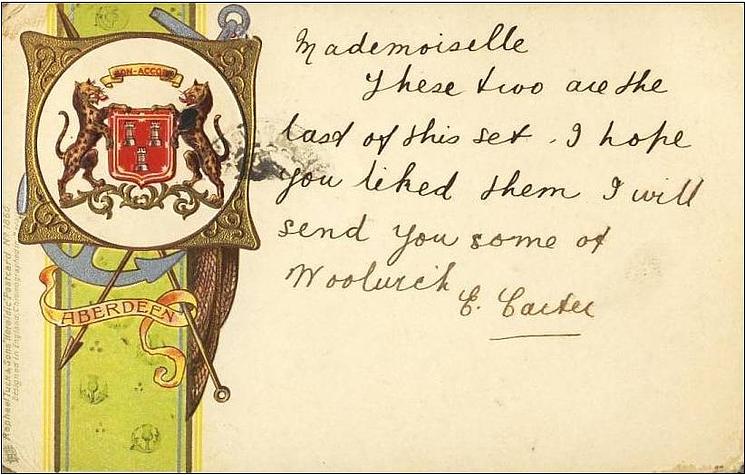 BON-ACCORD
ABERDEEN
Raphael Tuck & Sons "Heraldic" Postcard Nº 1060
Mademoiselle
These two are the
last of this set. I hope
you liked them I will
send you some of
Woolwich
E. Carter